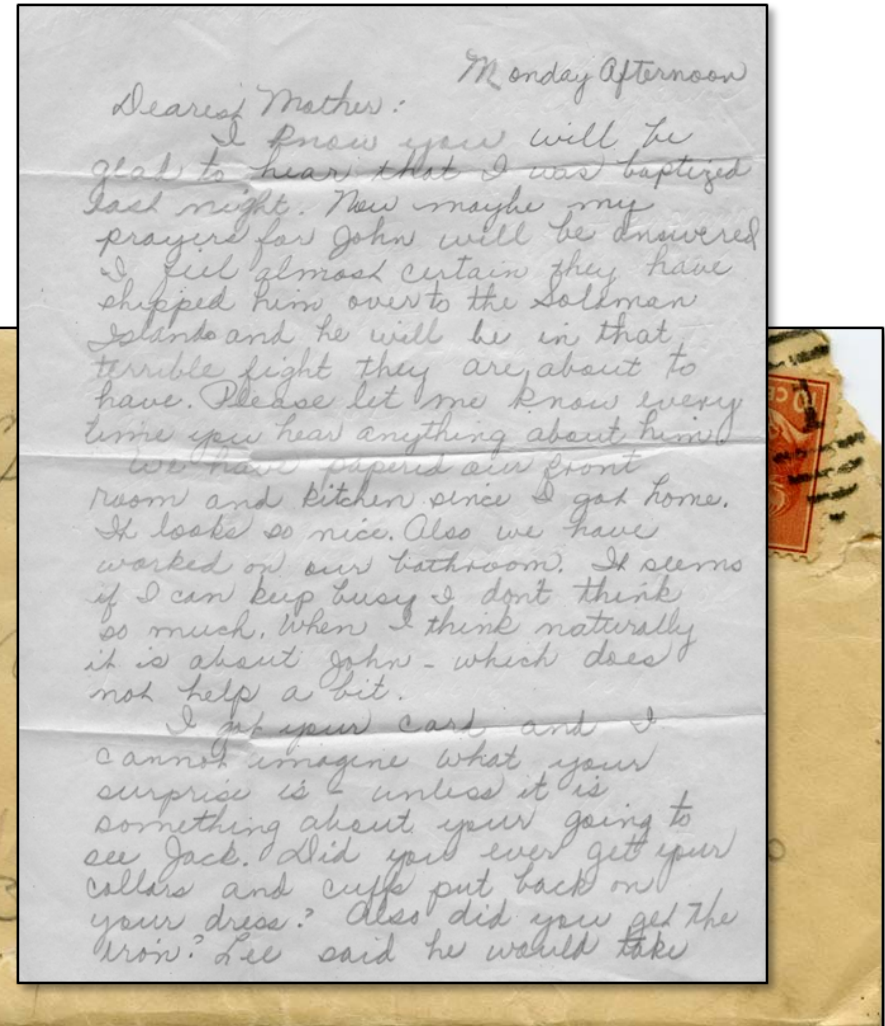 Monday Afternoon
Dearest Mother:
I know you will be
glad to hear that I was baptized
last night. Now maybe my
prayers for John will be answered
I feel almost certain they have
shipped him over to the Soloman
Islands and he will be in that
terrible fight they are about to
have. Please let me know every
time you hear anything about him.
We have papered our front
room and kitchen since I got home.
It looks so nice. Also we have
worked on our bathroom. It seems
if I can keep busy I dont think
so much. When I think naturally
it is about John - which does
not help a bit.
I got your card and I
cannot imagine what your
surprise is - unless it is
something about your going to
see Jack. Did you ever get your
collars and cuffs put back on
your dress? Also did you get the
iron? Lee said he would take
10 CE